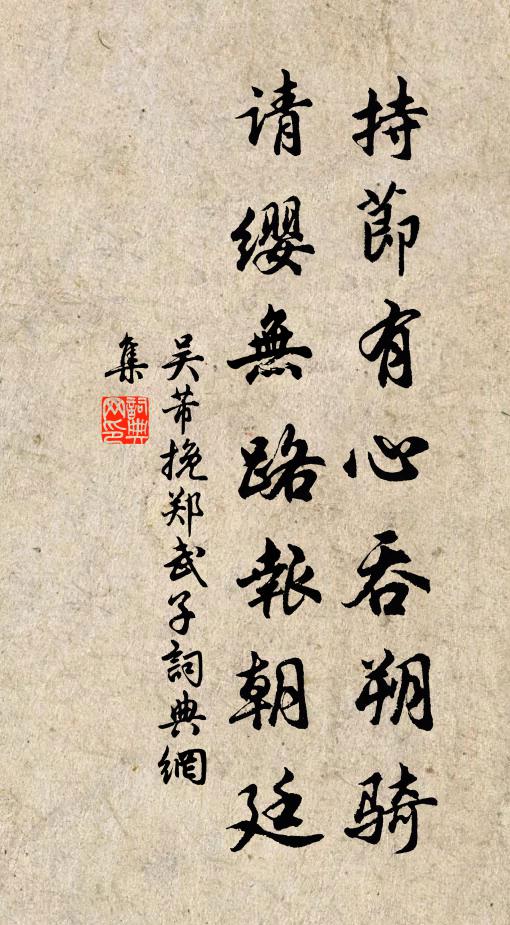 持節有心吞朔骑
请缨無路報朝廷
吴芾挽郑武子詞典網
集
詞典网印